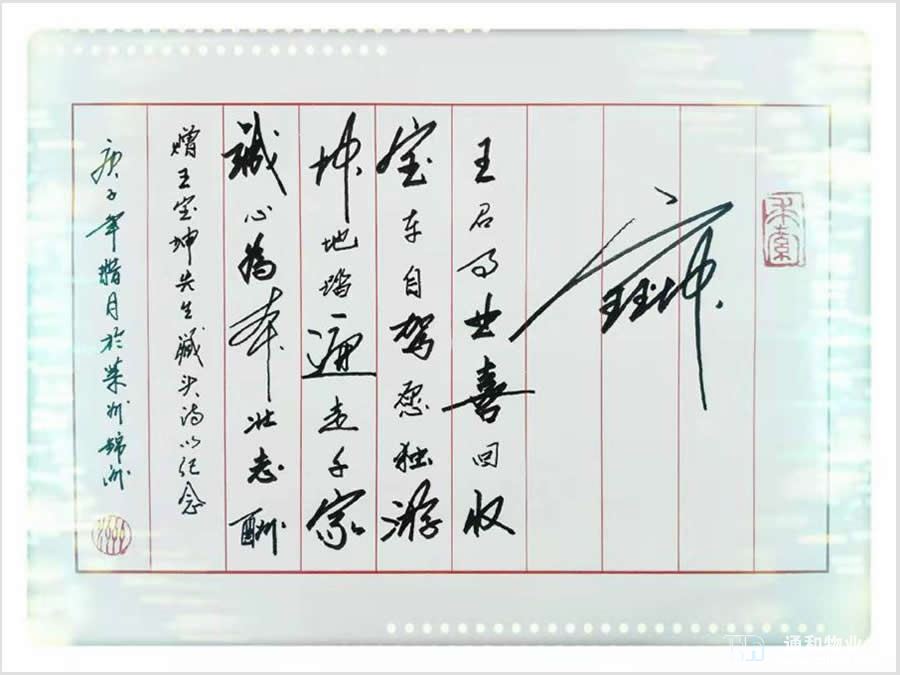 宝坤
王君为业喜回收
宝车自驾愿独游
坤地踏遍走千家
誠心為本壮志酬
赠王宝坤先生藏头诗以纪念
庚子年腊月於荣州锦洲
通和物业